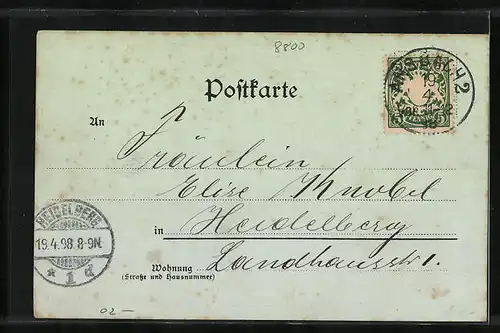 8800
Postkarte
ANSBACH 2
19
4
5 5
An
Fräulein
Elise Knobel
in Heidelberg
HEIDELBERG
19.4.98 8-9N.
* 1 d
Wohnung Landhausstr.
(Straße und Hausnummer)
02 –